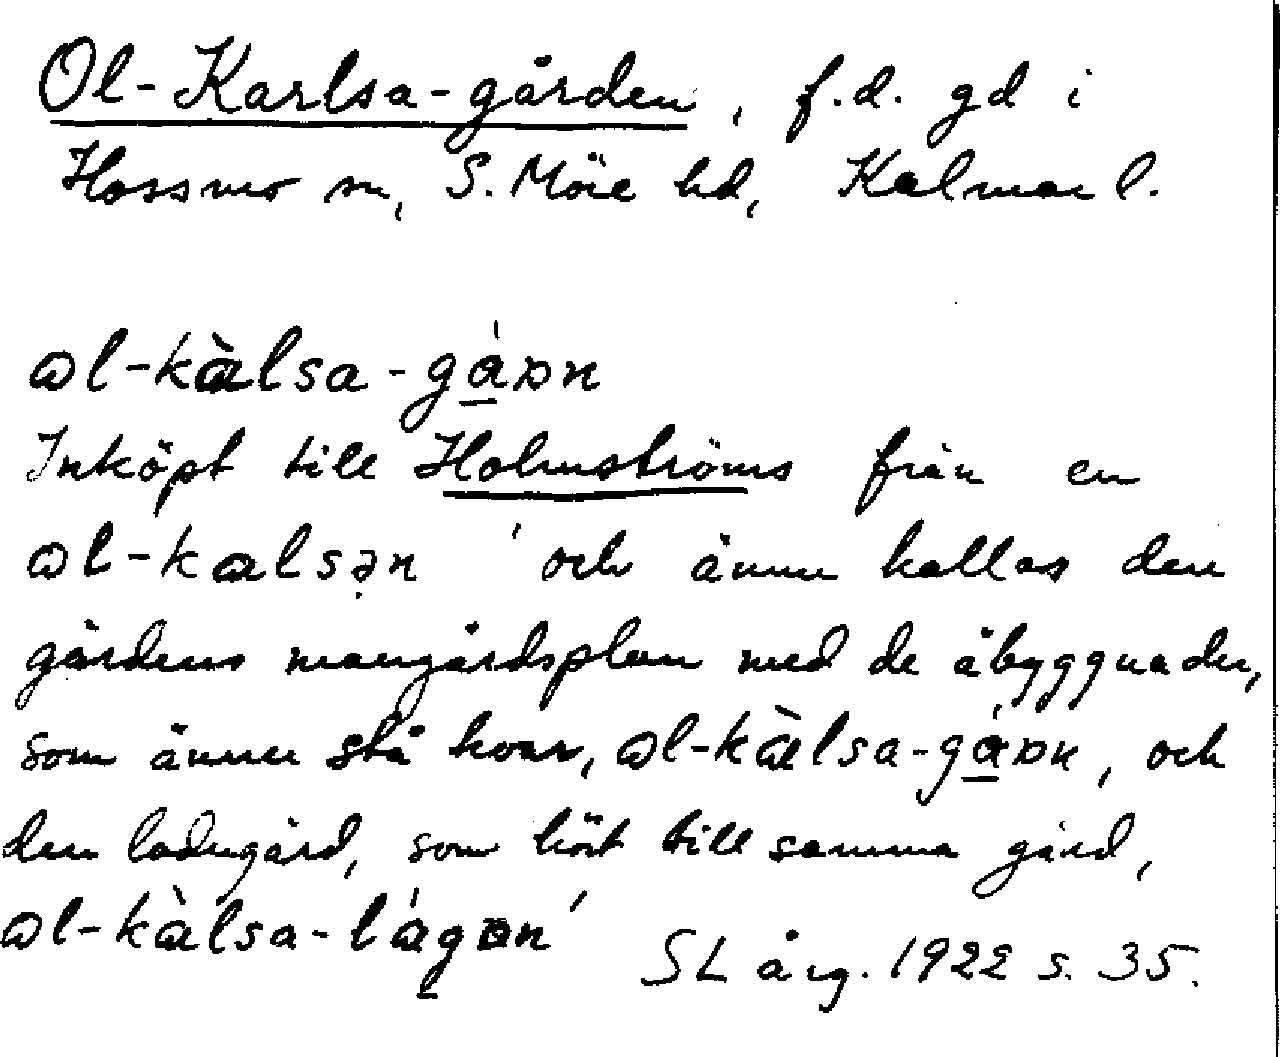 Ol-Karlsa-gården, f.d. gd i
Hossmo sn, S. Möre hd, Kalmar l.
ɷl-kàlsa-gá̱ɒn
Inköpt till Holmströms från en
ɷl-kalsən ' och ännu kallas den
gårdens mangårdsplan med de åbyggnader,
som ännu stå kvar, ɷl-kàlsa-gá̱ɒn, och
den ladugård, som hört till samma gård,
ɷl-kàlsa-lág̱ɒn'
SL årg. 1922 s. 35.